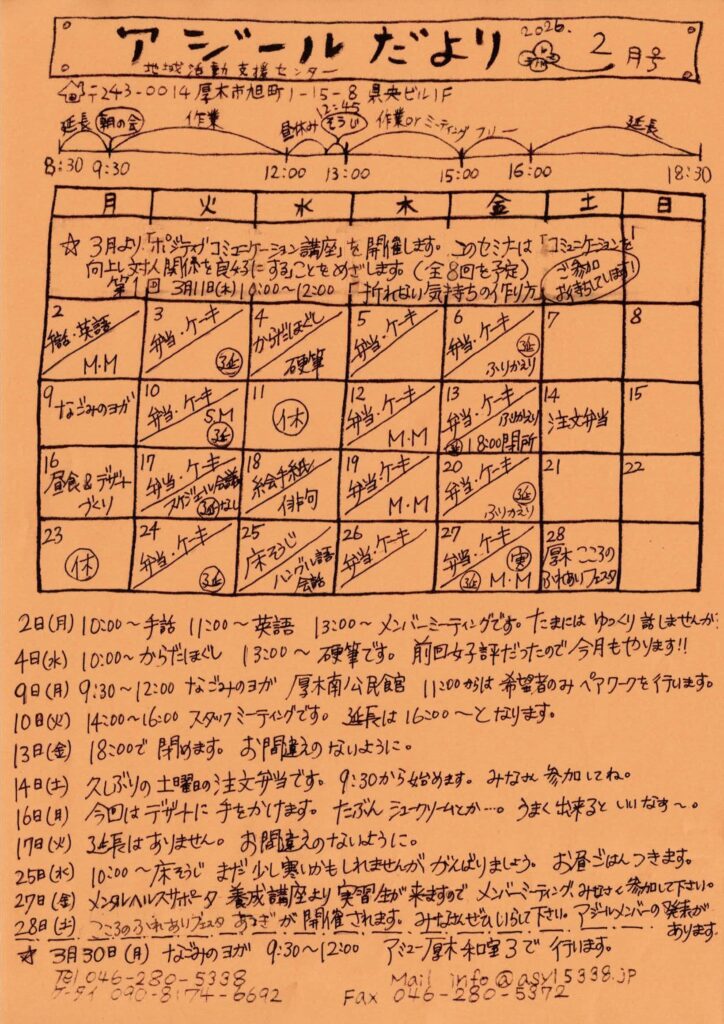 アジールだより 2026. 2月号
地域活動支援センター
〒243-0014 厚木市旭町1-15-8 県央ビル1F
延長 朝の会 作業 昼休み 12:45 そうじ 作業orミーティング フリー 延長
8:30 9:30 12:00 13:00 15:00 16:00 18:30
月 火 水 木 金 土 日
1
☆ 3月より「ポジティブコミュニケーション講座」を開催します。このセミナは「コミュニケーションを
向上し対人関係を良好にする」ことをめざします。(全8回を予定)
第1回 3月11日(水)10:00〜12:00 「折れない気持ちの作り方」
ご参加お待ちしています!
2 手話・英語 M・M
3 弁当・ケーキ 延
4 からだほぐし 硬筆
5 弁当・ケーキ
6 弁当・ケーキ 延 ふりかえり
7
8
9 なごみのヨガ
10 弁当・ケーキ S.M 延
11 休
12 弁当・ケーキ M・M
13 弁当・ケーキ ふりかえり 延 18:00閉所
14 注文弁当
15
16 昼食&デザートづくり
17 弁当・ケーキ スケジュール会議 延なし
18 絵手紙 俳句
19 弁当・ケーキ M・M
20 弁当・ケーキ 延 ふりかえり
21
22
23 休
24 弁当・ケーキ 延
25 床そうじ ハングル語会話
26 弁当・ケーキ
27 弁当・ケーキ 実 延 M・M
28 厚木こころのふれあいフェスタ
2日(月) 10:00〜手話 11:00〜英語 13:00〜メンバーミーティングです。たまにはゆっくり話しませんか?
4日(水) 10:00〜からだほぐし 13:00〜硬筆です。前回好評だったので今月もやります!!
9日(月) 9:30〜12:00 なごみのヨガ 厚木南公民館 11:00からは希望者のみペアワークを行います。
10日(火) 14:00〜16:00 スタッフミーティングです。延長は16:00〜となります。
13日(金) 18:00で閉めます。お間違えのないように。
14日(土) 久しぶりの土曜日の注文弁当です。9:30から始めます。みなさん参加してね。
16日(月) 今回はデザートに手をかけます。たぶんシュークリームとか…。うまく出来るといいなぁ〜。
17日(火) 延長はありません。お間違えのないように。
25日(水) 10:00〜床そうじ まだ少し寒いかもしれませんががんばりましょう。お昼ごはんつきます。
27日(金) メンタルヘルスサポータ養成講座より実習生が来ますのでメンバーミーティング、みなさんも参加して下さい。
28日(土) こころのふれあいフェスタあつぎが開催されます。みなさんぜひいらして下さい。アジールメンバーの発表があります。
☆ 3月30日(月) なごみのヨガ 9:30〜12:00 アミュー厚木和室3で行います。
Tel 046-280-5338 Mail info@asyl5338.jp
ケータイ 090-8174-6692 Fax 046-280-5372